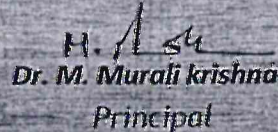 Dr. M. Murali krishna
Principal